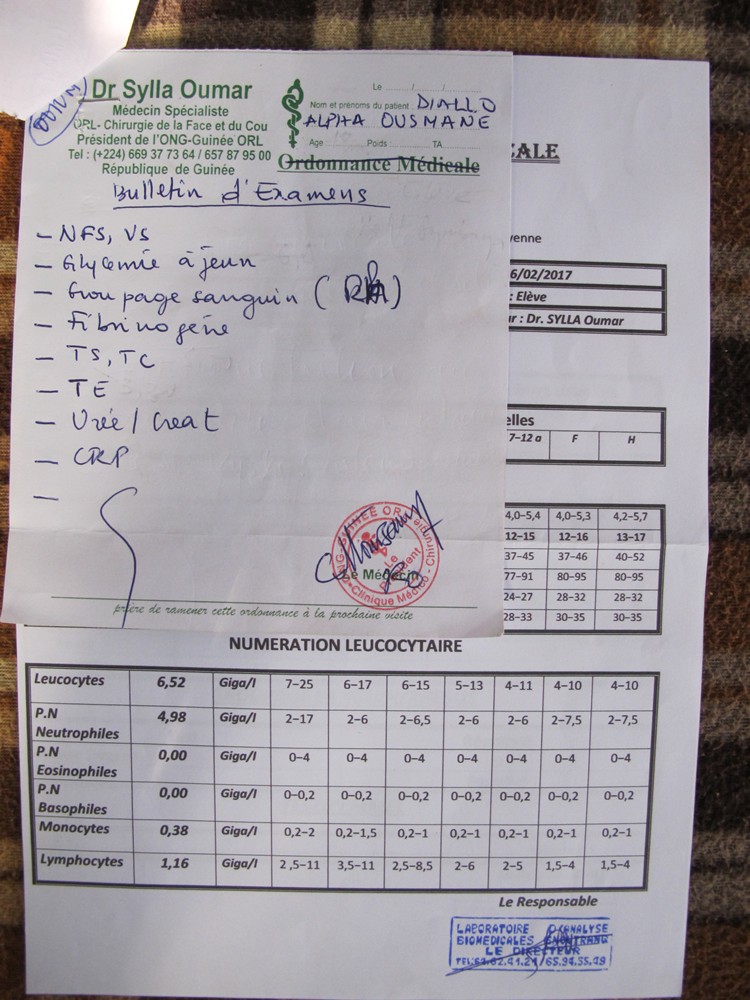 Dr Sylla Oumar
Médecin Spécialiste
ORL- Chirurgie de la Face et du Cou
Président de l'ONG-Guinée ORL
Tel : (+224) 669 37 73 64 / 657 87 95 00
République de Guinée
Le / /
Nom et prénoms du patient DIALLO
ALPHA OUSMANE
Age Poids TA
Ordonnance Médicale
Bulletin d'Examens
– NFS, VS
– Glycemie à jeun
– Grou page sanguin (
– Fibrinogène
– TS, TC
– TE
– Urée / Creat
– CRP
–
Le Médecin
prière de ramener cette ordonnance à la prochaine visite
CALE
yenne
6/02/2017
: Elève
ur : Dr. SYLLA Oumar
elles
7–12 a F H
4,0–5,4 4,0–5,3 4,2–5,7
12–15 12–16 13–17
37–45 37–46 40–52
77–91 80–95 80–95
24–27 28–32 28–32
28–33 30–35 30–35
NUMERATION LEUCOCYTAIRE
Leucocytes 6,52 Giga/l 7–25 6–17 6–15 5–13 4–11 4–10 4–10
P.N Neutrophiles 4,98 Giga/l 2–17 2–6 2–6,5 2–6 2–6 2–7,5 2–7,5
P.N Eosinophiles 0,00 Giga/l 0–4 0–4 0–4 0–4 0–4 0–4 0–4
P.N Basophiles 0,00 Giga/l 0–0,2 0–0,2 0–0,2 0–0,2 0–0,2 0–0,2 0–0,2
Monocytes 0,38 Giga/l 0,2–2 0,2–1,5 0,2–1 0,2–1 0,2–1 0,2–1 0,2–1
Lymphocytes 1,16 Giga/l 2,5–11 3,5–11 2,5–8,5 2–6 2–5 1,5–4 1,5–4
Le Responsable
LABORATOIRE D'ANALYSE
BIOMEDICALES
LE DIRECTEUR